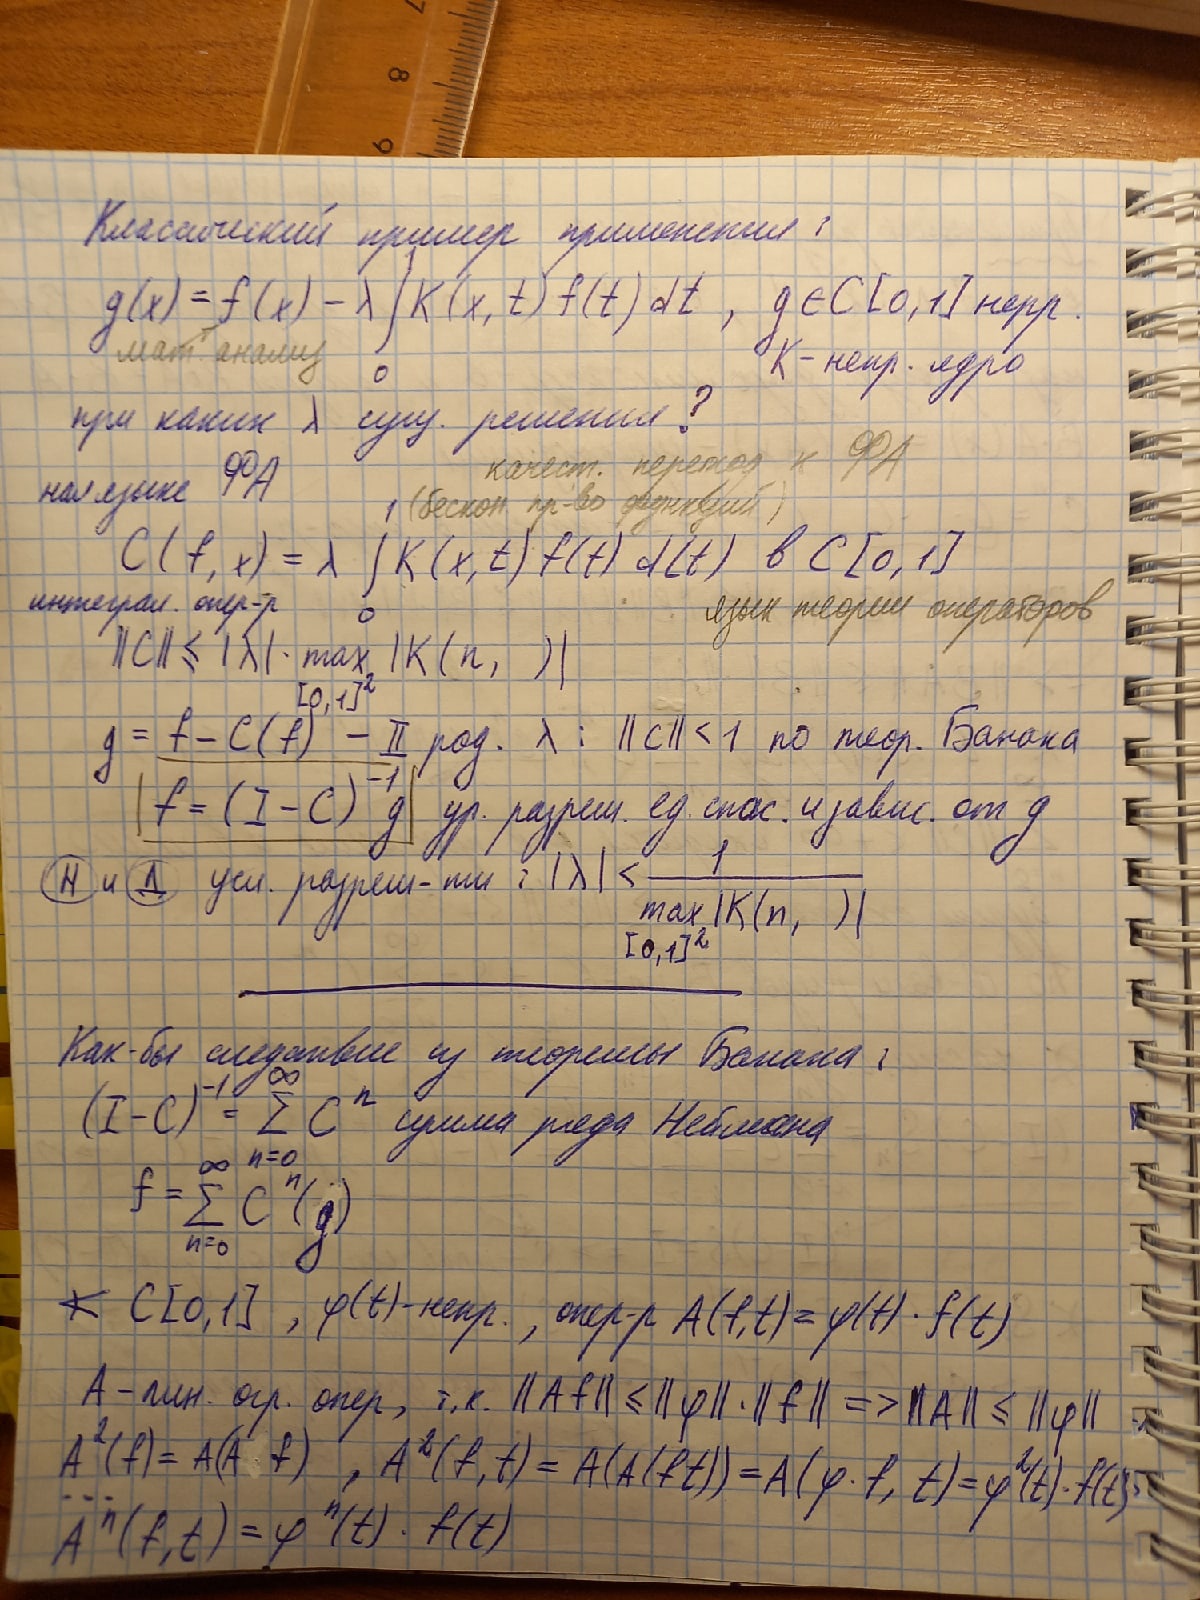 7
8
9
Классический пример применения:
g(x) = f(x) - λ ∫₀¹ K(x, t) f(t) dt , g ∈ C[0,1] непр.
мат. анализ
K - непр. ядро
при каких λ сущ. решения?
на языке ФА
качест. переход к ФА
(бескон. пр-во функций)
C(f, x) = λ ∫₀¹ K(x, t) f(t) d(t) в C[0,1]
интеграл. опер-р
язык теории операторов
||C|| ≤ |λ| · max |K(n, )|
[0,1]²
g = f - C(f) - II род. λ : ||C|| < 1 по теор. Банаха
f = (I - C)⁻¹ g ур. разреш. ед. спос. и завис. от g
Н и Л усл. разреш-ти : |λ| < 1
max |K(n, )|
[0,1]²
Как-бы следствие из теоремы Банаха:
(I - C)⁻¹ = ∑ₙ₌₀^∞ Cⁿ сумма ряда Неймана
f = ∑ₙ₌₀^∞ Cⁿ(g)
C[0,1] , φ(t) - непр. , опер-р A(f, t) = φ(t) · f(t)
A - лин. огр. опер, т.к. ||Af|| ≤ ||φ|| · ||f|| => ||A|| ≤ ||φ||
A²(f) = A(A f) , A²(f, t) = A(A(f t)) = A(φ · f, t) = φ²(t) · f(t)
...
Aⁿ(f, t) = φⁿ(t) · f(t)